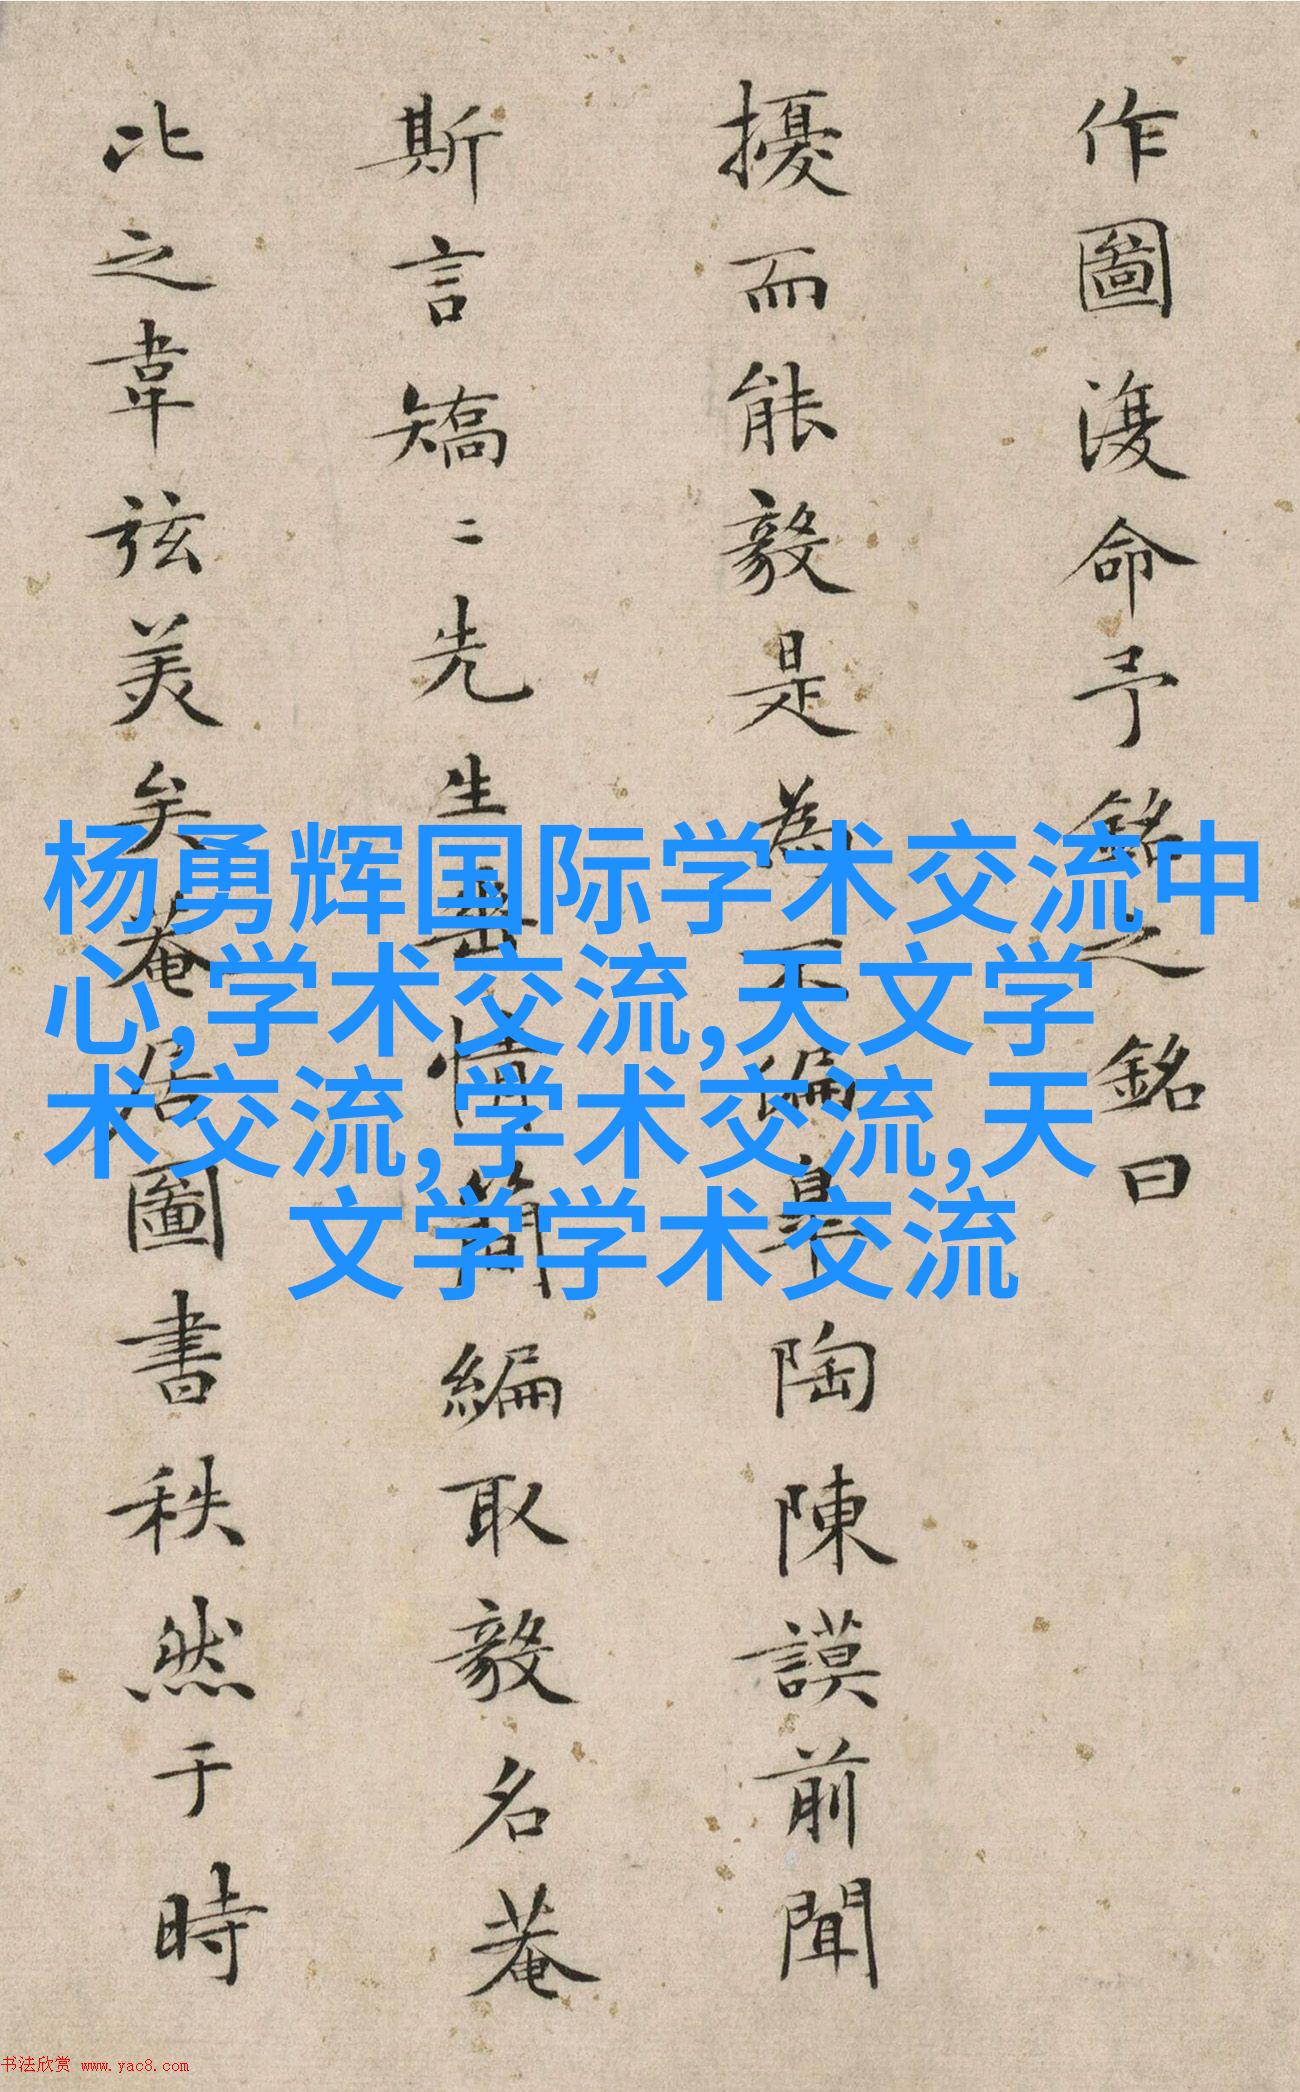 作圖復命予銘之銘曰
擾而能毅是為不偏皋陶陳謨前聞
斯言矯二先生岳情簡編取毅名菴
比之韋弦美矣菴居圖書秩然于時
杨勇辉国际学术交流中
心,学术交流,天文学
术交流,学术交流,天
文学学术交流
书法欣赏 www.yac8.com